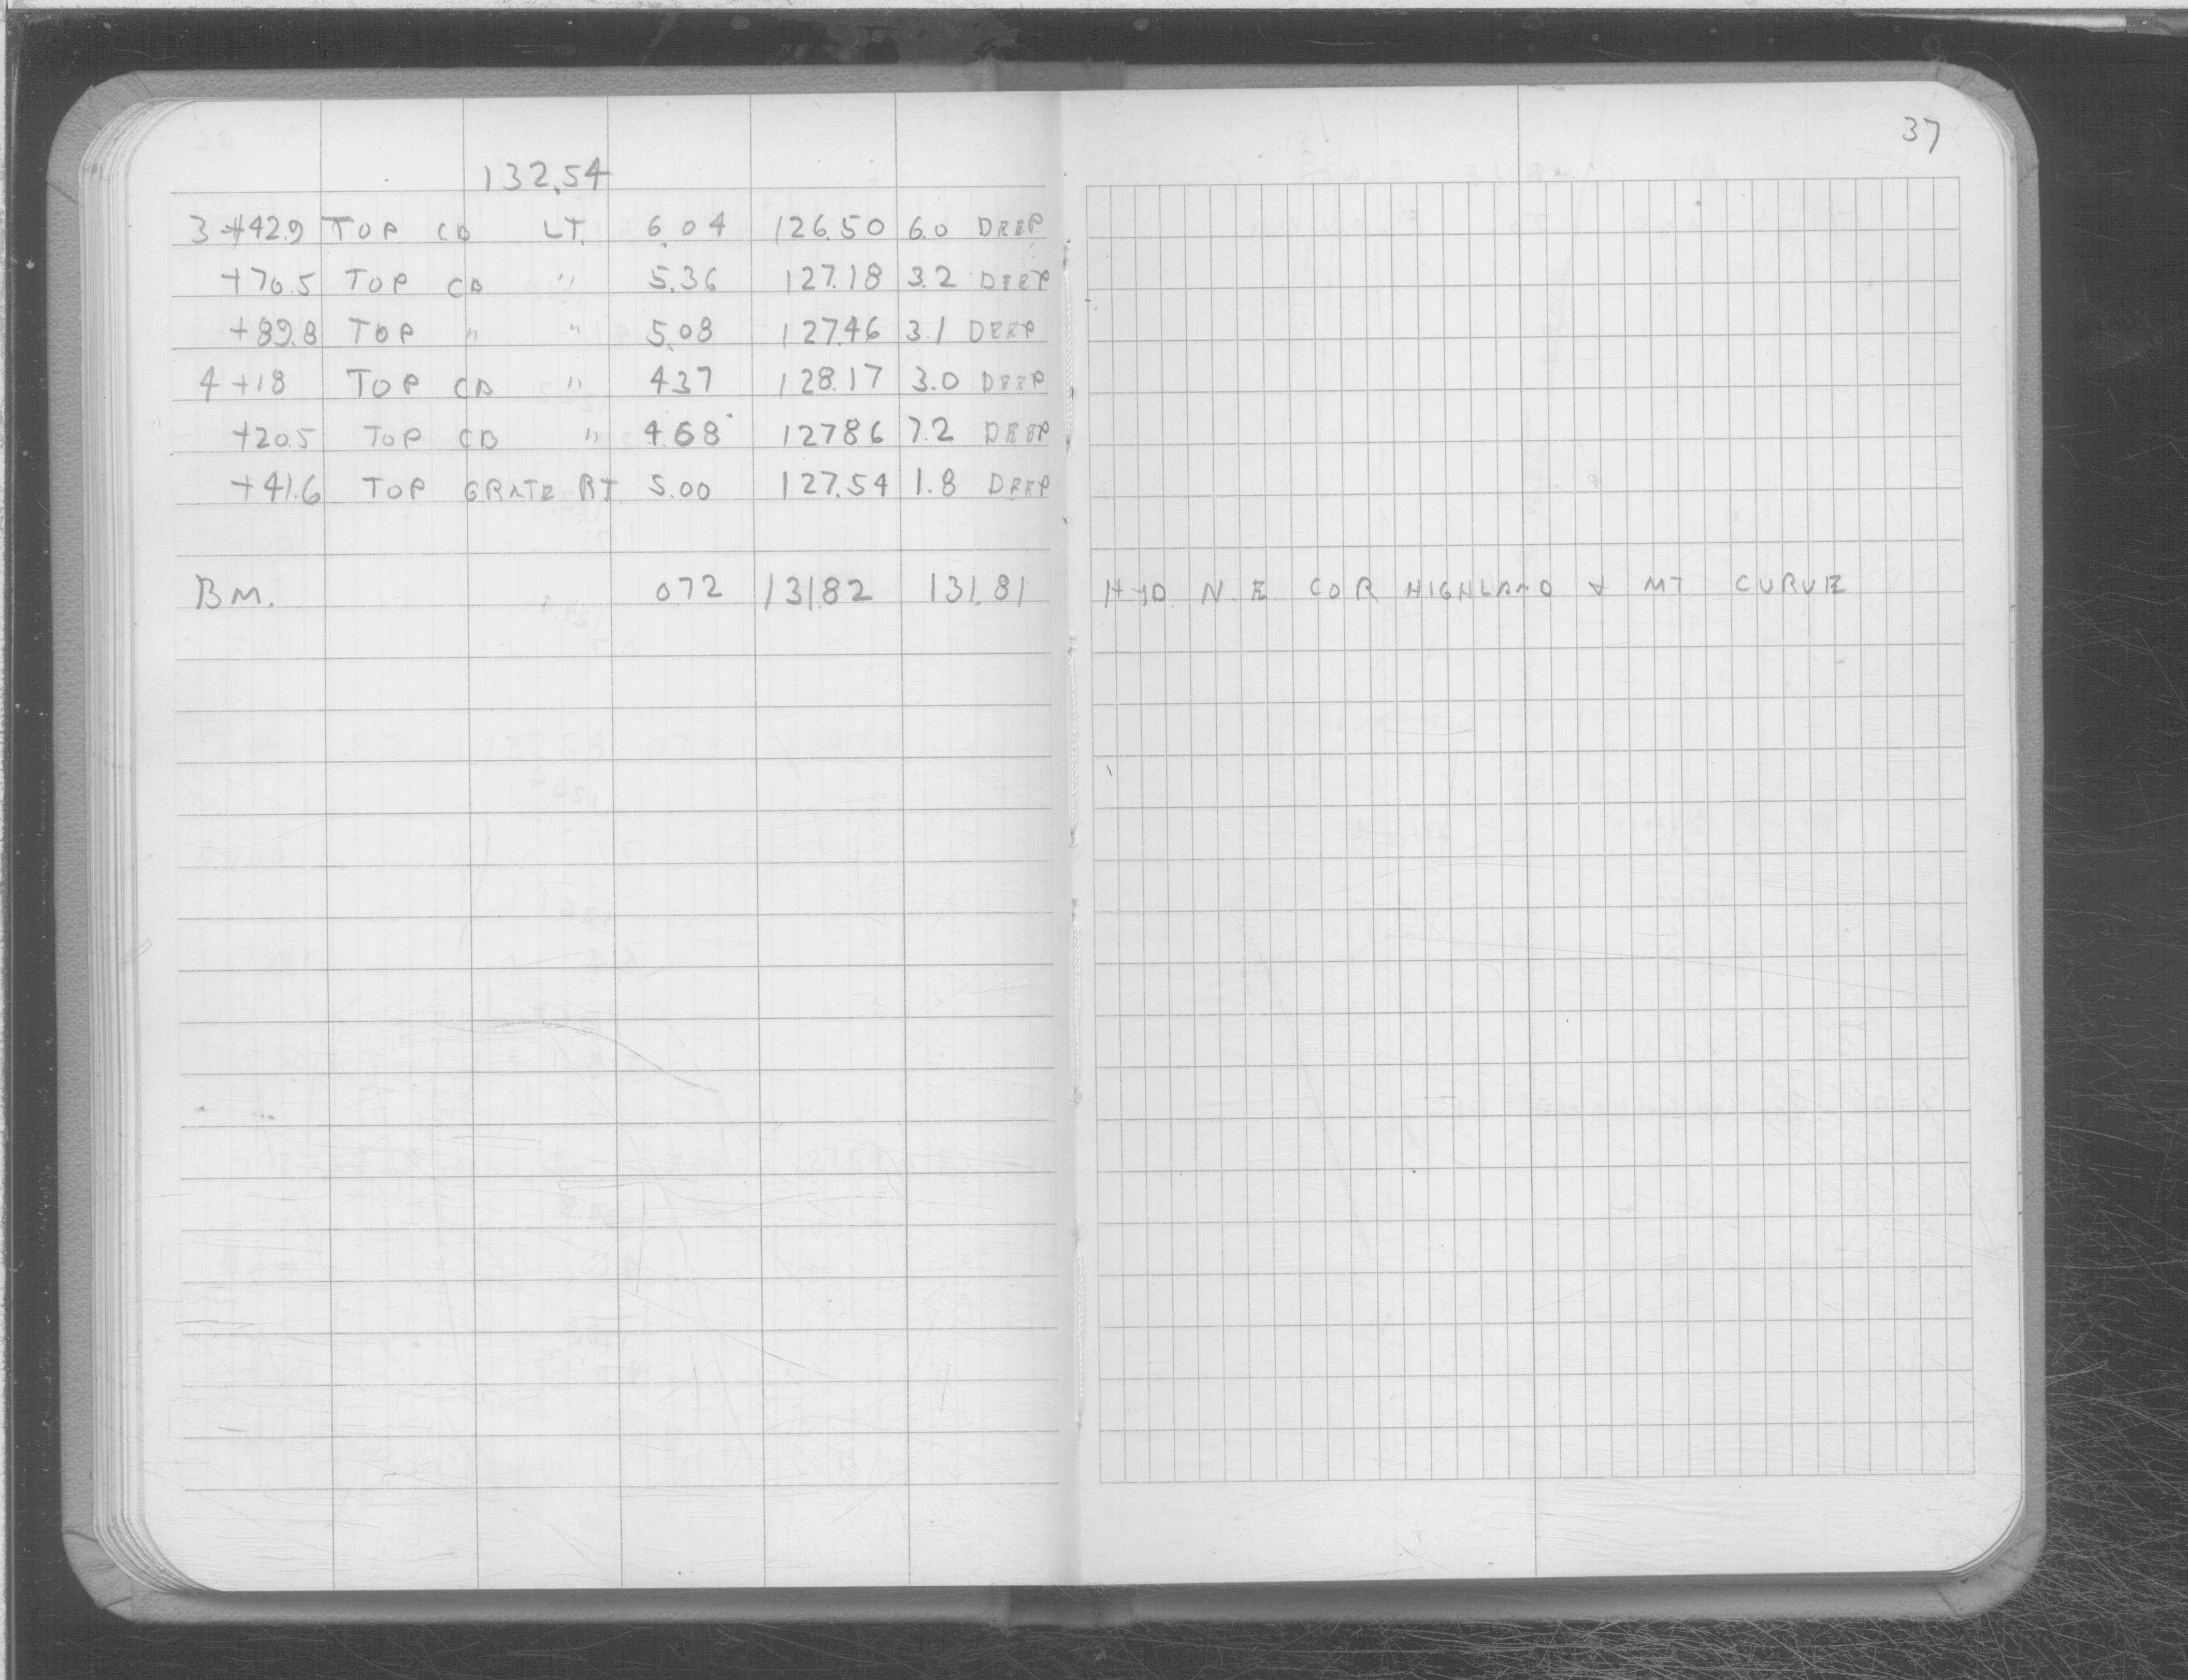 37
132.54
3+42.9 TOP CB LT. 6.04 126.50 6.0 DEEP
+70.5 TOP CB " 5.36 127.18 3.2 DEEP
+89.8 TOP " " 5.08 127.46 3.1 DEEP
4+18 TOP CB " 4.37 128.17 3.0 DEEP
+20.5 TOP CB " 4.68 127.86 7.2 DEEP
+41.6 TOP GRATE RT 5.00 127.54 1.8 DEEP
BM. 0.72 131.82 131.81 HYD N.E COR HIGHLAND & MT CURVE